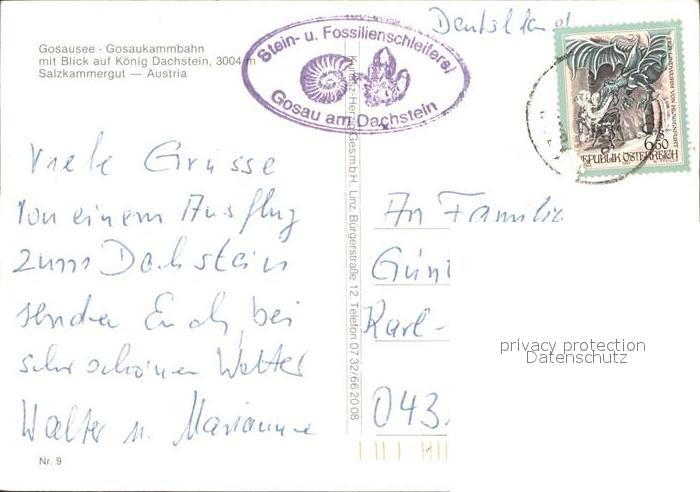 Gosausee - Gosaukammbahn
mit Blick auf König Dachstein, 3004 m
Salzkammergut — Austria
Stein- u. Fossilienschleiferei
Gosau am Dachstein
Deutschland
6.50
REPUBLIK ÖSTERREICH
Viele Grüsse
von einem Ausflug
zum Dachstein
senden Euch, bei
sehr schönen Wetter
Walter u. Marianne
Nr. 9
GesmbH, Linz, Bürgerstraße 12, Telefon 07 32/66 20 08
An Familie
Günt
Karl-
043
privacy protection
Datenschutz